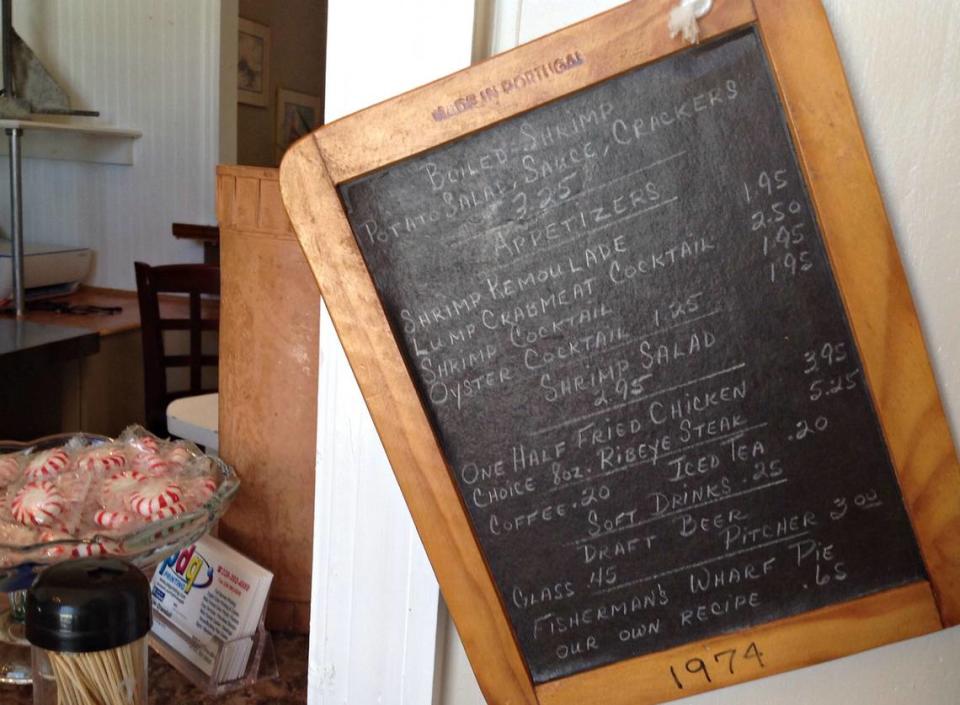 MADE IN PORTUGAL
BOILED SHRIMP
POTATO SALAD, SAUCE, CRACKERS
3.25
APPETIZERS
SHRIMP REMOULADE 1.95
LUMP CRABMEAT COCKTAIL 2.50
SHRIMP COCKTAIL 1.95
OYSTER COCKTAIL 1.25 1.95
SHRIMP SALAD
2.95
ONE HALF FRIED CHICKEN 3.95
CHOICE 8oz. RIBEYE STEAK 5.25
COFFEE .20 ICED TEA .20
SOFT DRINKS .25
DRAFT BEER
GLASS .45 PITCHER 3.00
FISHERMAN'S WHARF PIE
OUR OWN RECIPE .65
1974
pdq
PRINTING